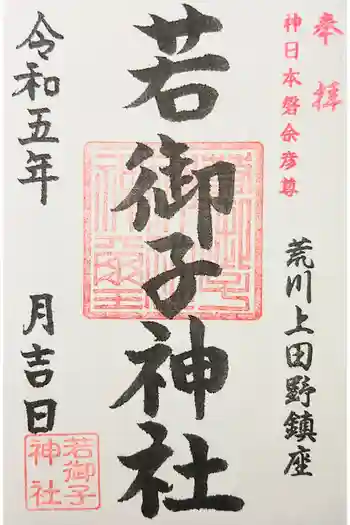 奉拝
神日本磐余彦尊
荒川上田野鎮座
若御子神社
令和五年 月吉日
若御子
神社